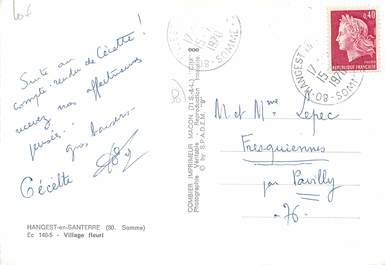 Suite au
compte-rendu de Cécette !
recevez nos affectueuses
pensées.
gros baisers.
Cécette
HANGEST-en-SANTERRE (80. Somme)
Ec 140-5 - Village fleuri
COMBIER IMPRIMEUR MACON (71 S.-&-L.) "CIM"
Photographie Véritable - Reproduction interdite
© by S.P.A.D.E.M.
0,40
REPUBLIQUE FRANÇAISE
HANGEST EN
17
15
1970
80 - SOMME
M et Mme Lepec
Fresquiennes
par Pavilly
-76-